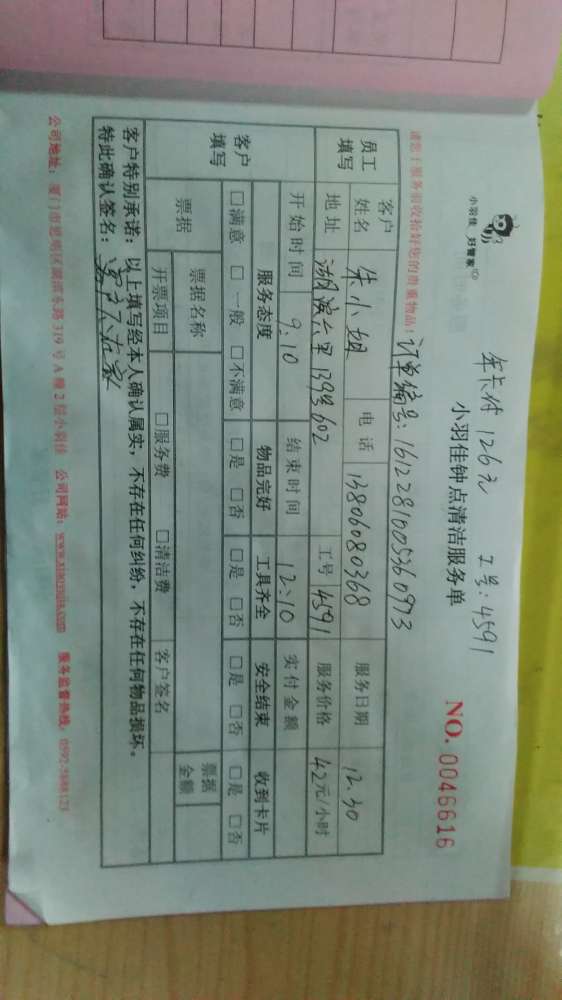 年卡付 126元 工号:4591
小羽佳 好管家
小羽佳钟点清洁服务单
NO. 0046616
请您于服务前收拾好您的贵重物品!
订单编号:1612281605360973
员工填写
客户姓名 朱小姐 电话 13806080368 服务日期 12.30
地址 湖滨六里139号602 工号 4591 服务价格 42元/小时
开始时间 9:10 结束时间 12:10 实付金额
客户填写
服务态度 物品完好 工具齐全 安全结束 收到卡片
□满意 □一般 □不满意 □是 □否 □是 □否 □是 □否 □是 □否
票据 票据名称 票据金额
开票项目 □服务费 □清洁费 客户签名
客户特别承诺:以上填写经本人确认属实,不存在任何纠纷,不存在任何物品损坏。
特此确认签名:
公司地址:厦门市思明区湖滨东路319号A幢2层小羽佳 公司网站:www.xiaoyujia.com 服务监督热线:0592-5888123